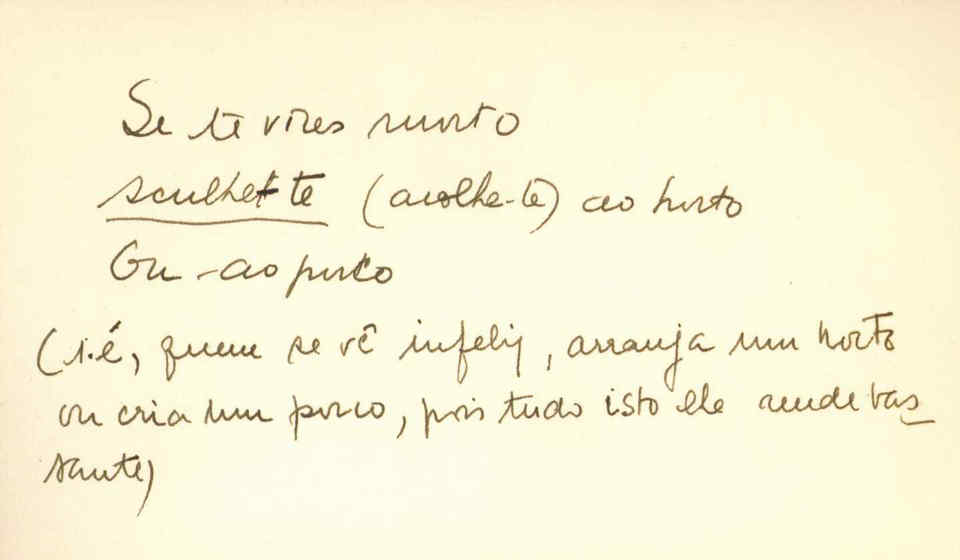 Se te vires morto
sculhet-te (acolhe-te) ao horto
Ou - ao porco
(i.é, quem se vê infeliz, arranja um horto
ou cria um porco, pois tudo isto ele rende bas-
tante)